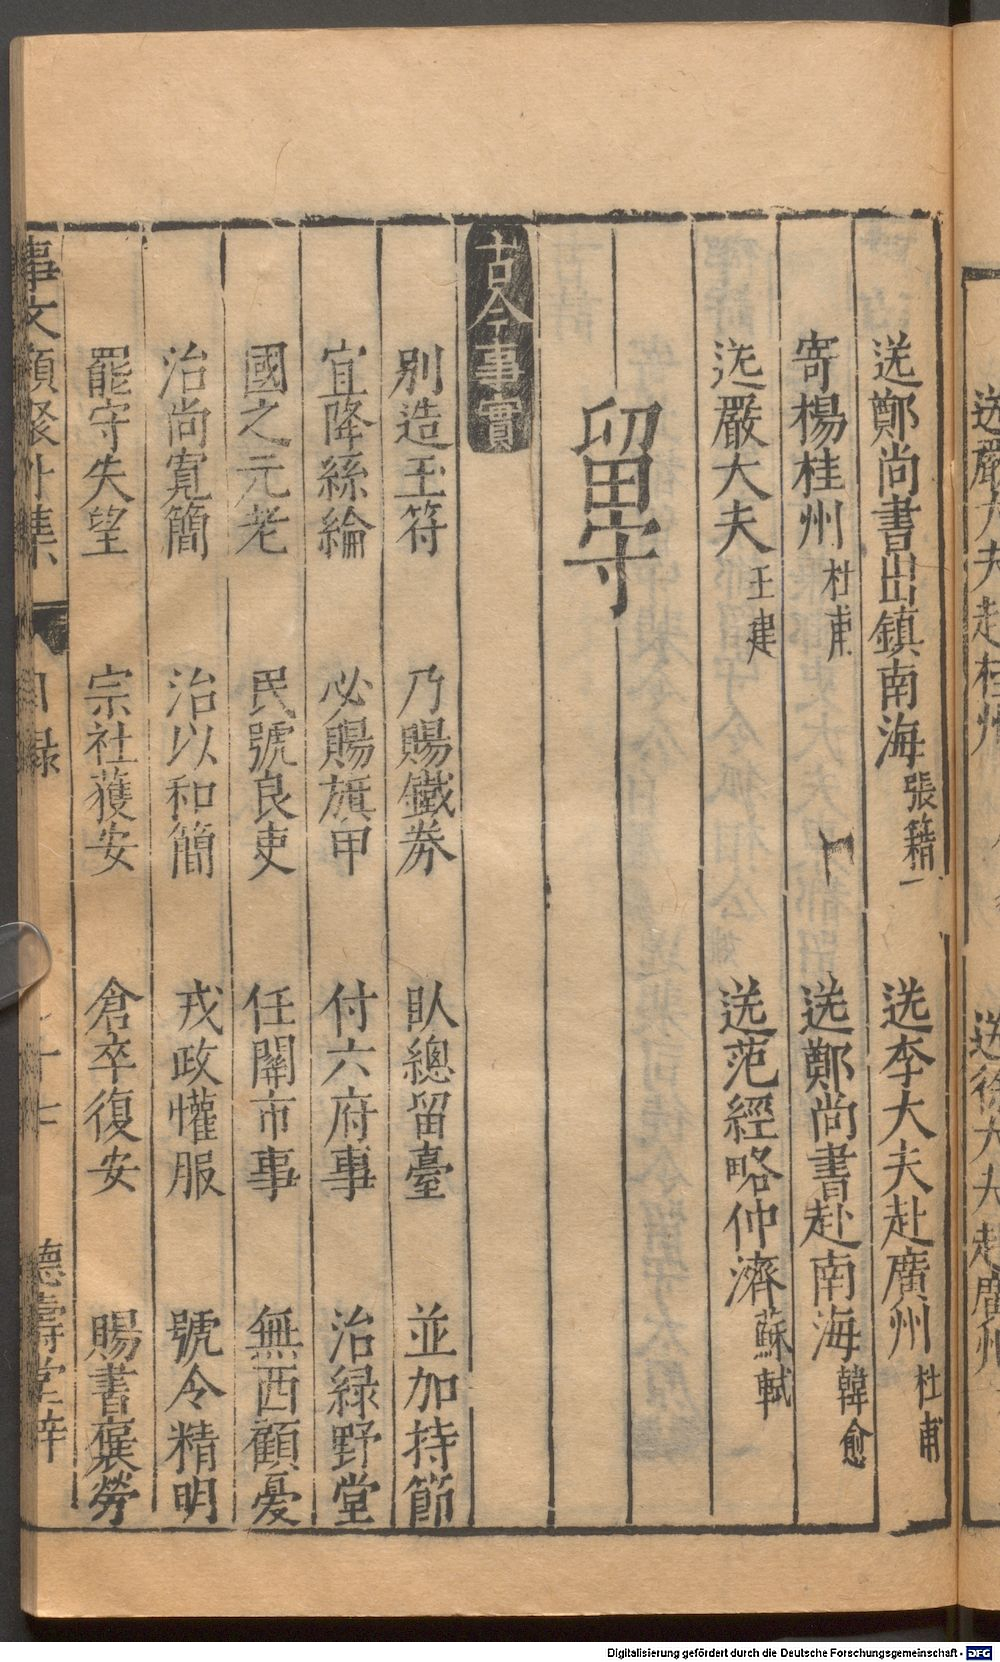 送鄭尚書出鎮南海 張籍 送李大夫赴廣州 杜甫
寄楊桂州 杜甫 送鄭尚書赴南海 韓愈
送嚴大夫 王建 送范經略仲濟 蘇軾
留守
古今事實
別造玉符 乃賜鐵券 臥總留臺 並加持節
宜降絲綸 必賜旗甲 付六府事 治綠野堂
國之元老 民號良吏 任關市事 無西顧憂
治尚寬簡 治以和簡 戎政懽服 號令精明
罷守失望 宗社獲安 倉卒復安 賜書褒勞
事文類聚外集 目録 德壽堂梓
送嚴大夫赴桂州
送徐大夫赴廣州
Digitalisierung gefördert durch die Deutsche Forschungsgemeinschaft - DFG